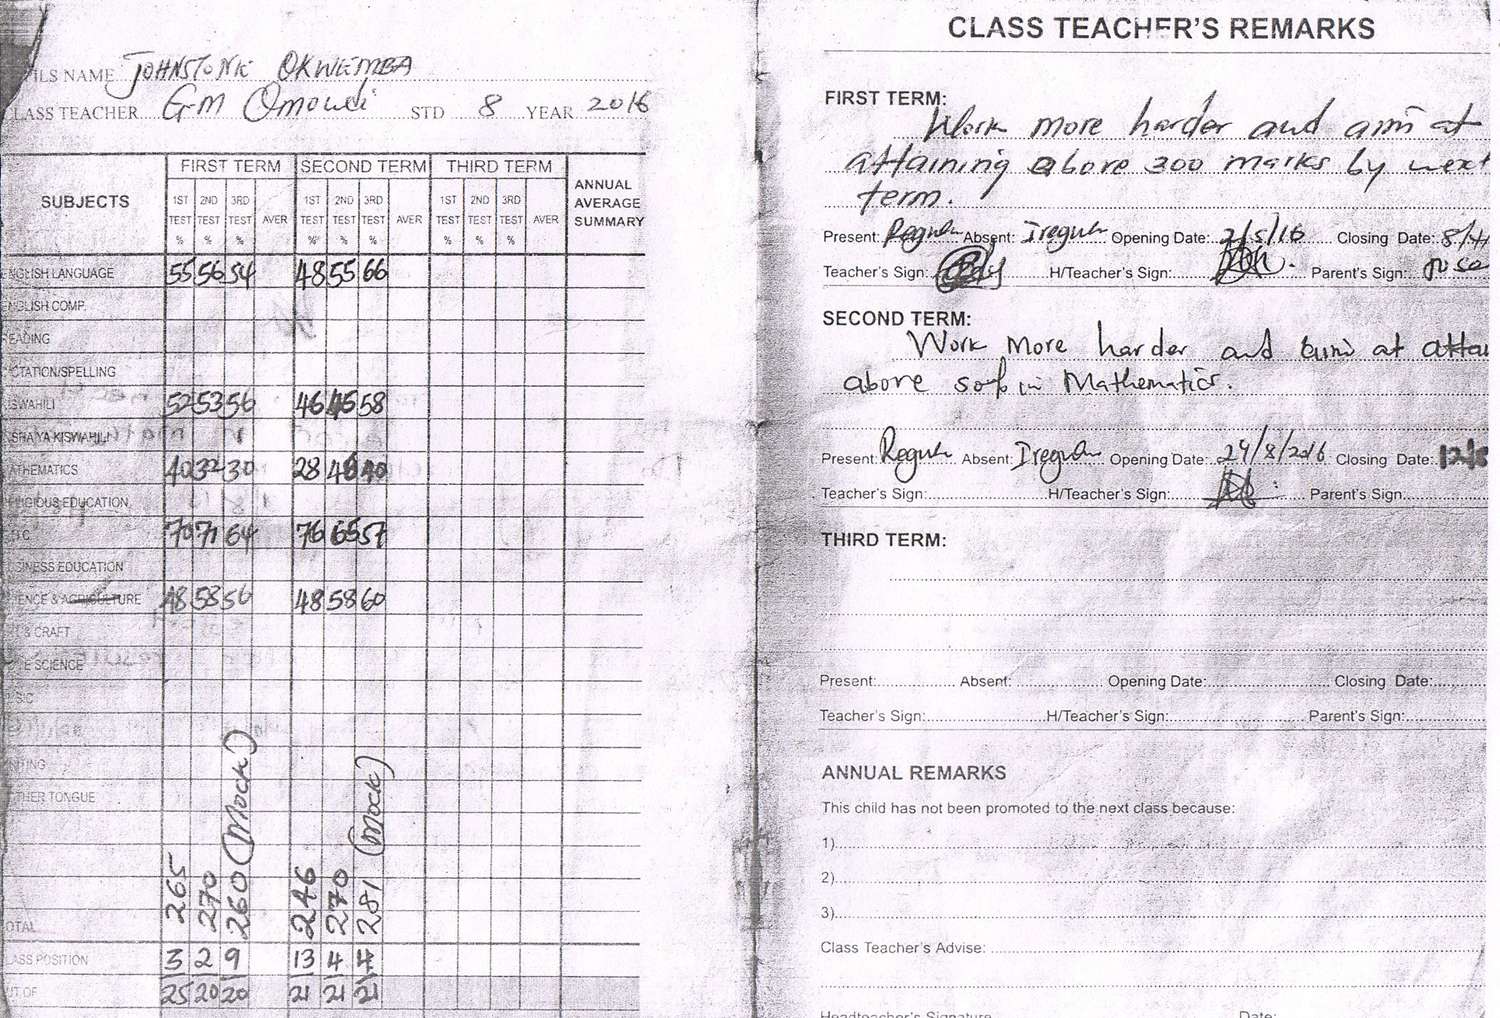 ILS NAME JOHNSTONE OKWEMBA
LASS TEACHER G.M Omowdi STD 8 YEAR 2016
SUBJECTS FIRST TERM SECOND TERM THIRD TERM ANNUAL AVERAGE SUMMARY
1ST TEST % 2ND TEST % 3RD TEST % AVER 1ST TEST % 2ND TEST % 3RD TEST % AVER 1ST TEST % 2ND TEST % 3RD TEST % AVER
NGLISH LANGUAGE 55 56 54 48 55 66
NGLISH COMP.
EADING
CTATION/SPELLING
ISWAHILI 52 53 56 46 45 58
SHA YA KISWAHILI
ATHEMATICS 40 32 30 28 48 40
LIGIOUS EDUCATION
70 71 64 76 65 57
SINESS EDUCATION
IENCE & AGRICULTURE 48 58 56 48 58 60
& CRAFT
E SCIENCE
S.C
ITING
THER TONGUE
OTAL 265 270 260 (Mock) 246 270 281 (Mock)
LASS POSITION 3 2 9 13 4 4
UT OF 25 20 20 21 21 21
CLASS TEACHER'S REMARKS
FIRST TERM:
Work more harder and aim at
attaining above 300 marks by next
term.
Present: Regular Absent: Iregular Opening Date: 2/5/16 Closing Date: 8/4
Teacher's Sign: H/Teacher's Sign: Parent's Sign:
SECOND TERM:
Work more harder and aim at attai
above 50% in Mathematics.
Present: Regular Absent: Iregular Opening Date: 29/8/2016 Closing Date: 12/8
Teacher's Sign: H/Teacher's Sign: Parent's Sign:
THIRD TERM:
Present: Absent: Opening Date: Closing Date:
Teacher's Sign: H/Teacher's Sign: Parent's Sign:
ANNUAL REMARKS
This child has not been promoted to the next class because:
1)
2)
3)
Class Teacher's Advise:
Headteacher's Signature Date: